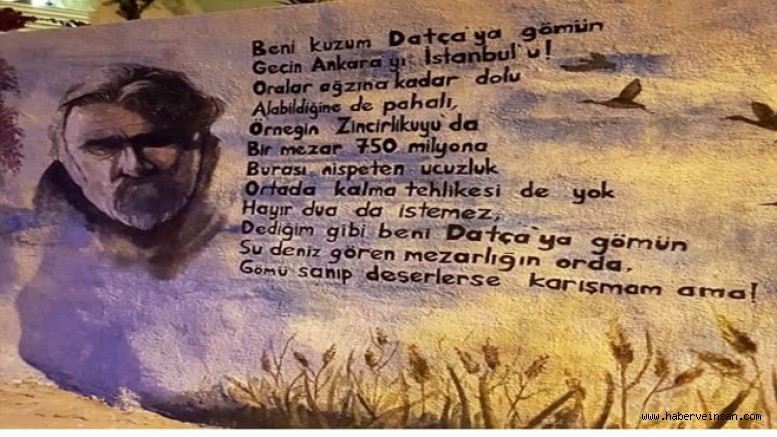 Beni kuzum Datça'ya gömün
Geçin Ankara'yı İstanbul'u!
Oralar ağzına kadar dolu
Alabildiğine de pahalı,
Örneğin Zincirlikuyu'da
Bir mezar 750 milyona
Burası nispeten ucuzluk
Ortada kalma tehlikesi de yok
Hayır dua da istemez,
Dediğim gibi beni Datça'ya gömün
Şu deniz gören mezarlığın orda,
Gömü sanıp deşerlerse karışmam ama!
www.haberveinsan.com